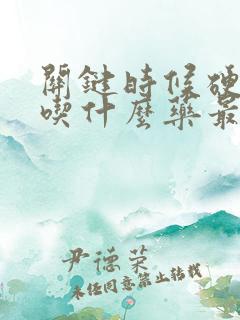 關鍵時候硬
喫什麼藥最
尹德荣
未经同意禁止转载